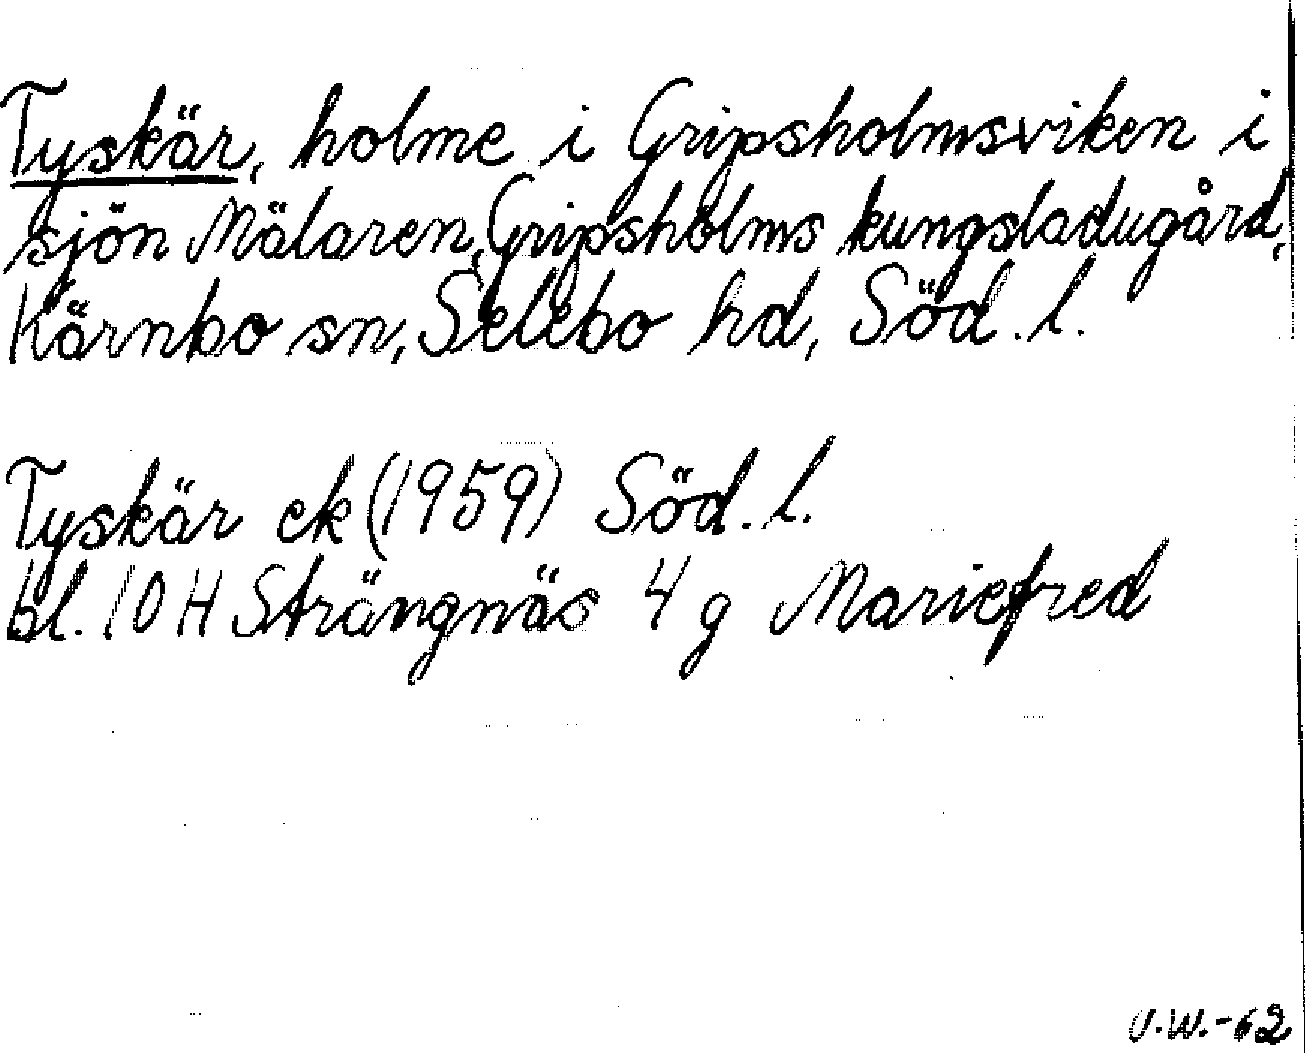 Tyskär, holme i Gripsholmsviken i
sjön Mälaren, Gripsholms kungsladugård,
Kärnbo sn, Selebo hd, Söd. l.
Tyskär ek (1959) Söd. l.
bl. 10 H Strängnäs 4 g Mariefred
U.W.-62